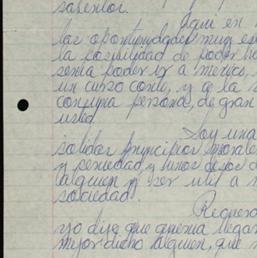 Aqui en
las oportunidades muy es
la posibilidad de poder
seria poder ir a
un curso corto, y a la
conoyna persona, de gran
usted.
Soy una
solidos principios morales
y seriedad y
alguien y ser util a
sociedad.
Requero
yo dije que queria llegar
mejor dicho alguien, que